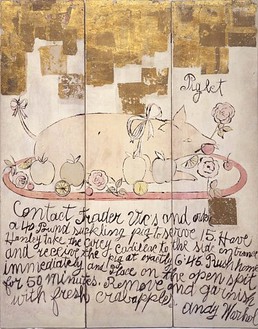 Piglet
Contact Trader Vic's and order
a 40 pound suckling pig to serve 15. Have
Hanley take the Carey Cadillac to the side entrance
and receive the pig at exactly 6:45. Rush home
immediately and place on the open spit
for 50 minutes. Remove and garnish
with fresh crabapples. Andy Warhol